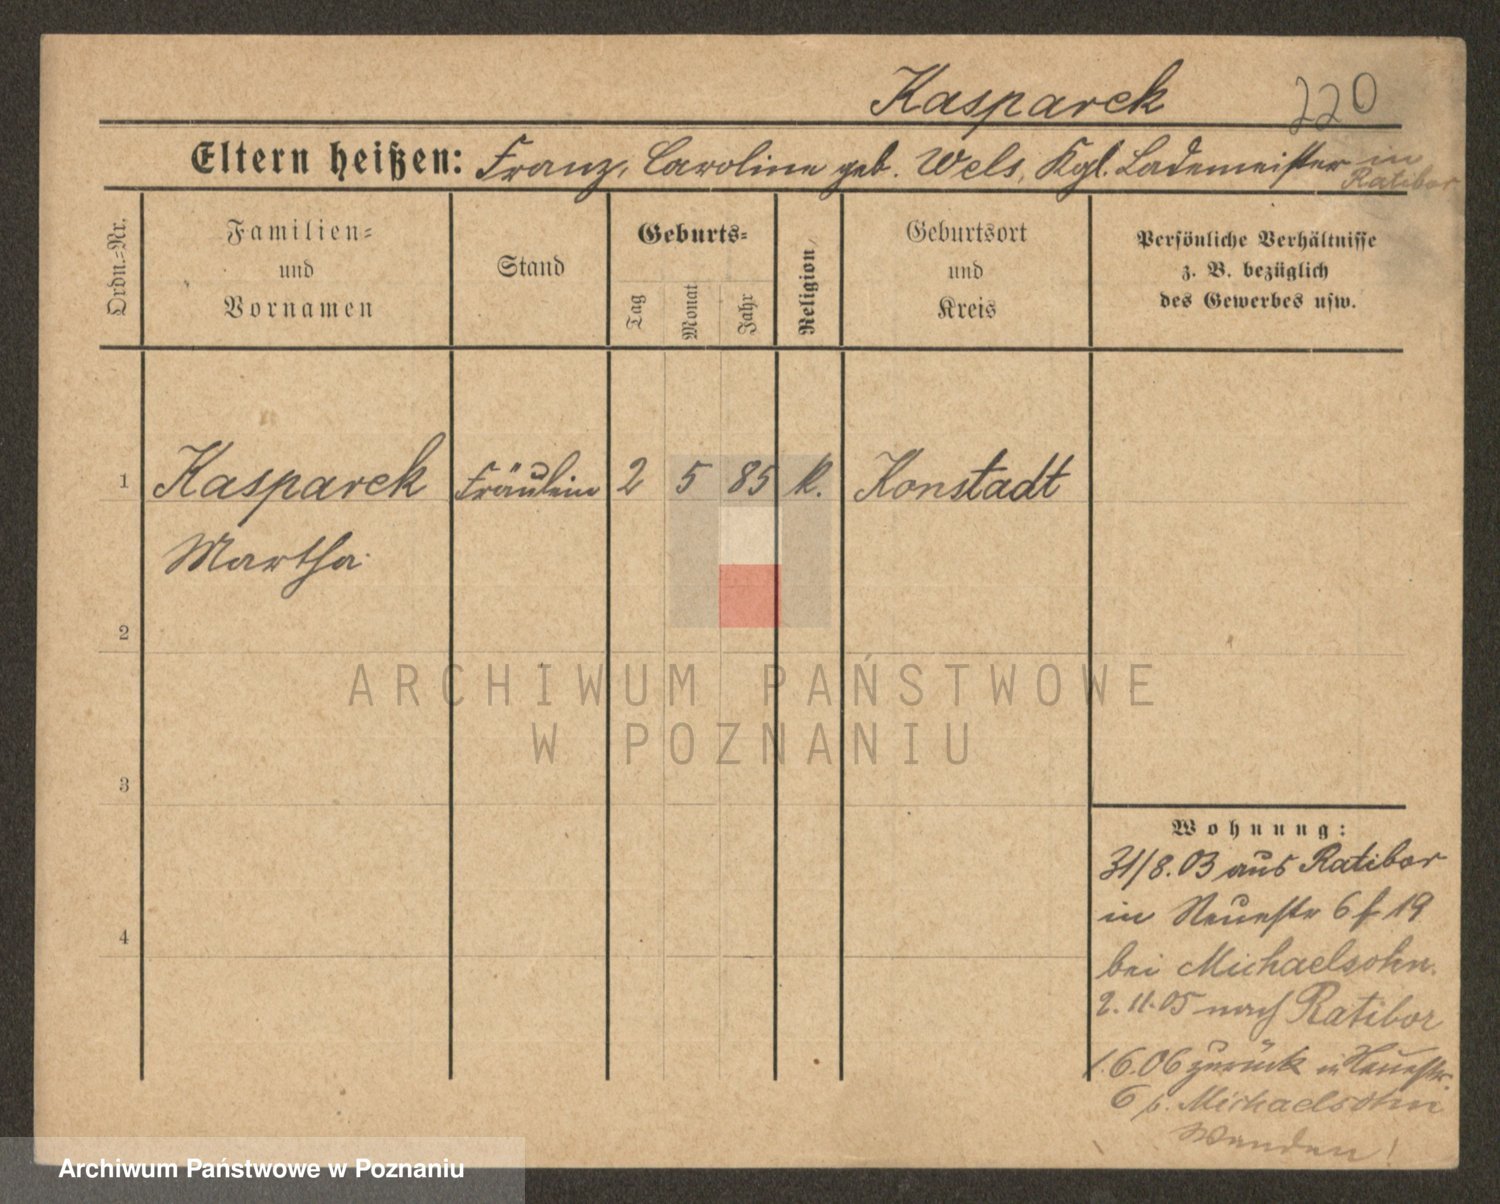 Kasparek 220
Eltern heißen: Franz, Caroline geb. Wels, Kgl. Lademeister in
Ratibor
Ordn.-Nr.
Familien-
und
Vornamen
Stand
Geburts-
Tag
Monat
Jahr
Religion
Geburtsort
und
Kreis
Persönliche Verhältnisse
z. B. bezüglich
des Gewerbes usw.
1 Kasparek Fräulein 2 5 85 k. Konstadt
Martha
2
3
4
Wohnung:
31/8.03 aus Ratibor
in Neuestr 6 19
bei Michaelsohn.
2.11.05 nach Ratibor
1.6.06 zurück in Neuestr.
6 b. Michaelsohn
ARCHIWUM PAŃSTWOWE
W POZNANIU
Archiwum Państwowe w Poznaniu